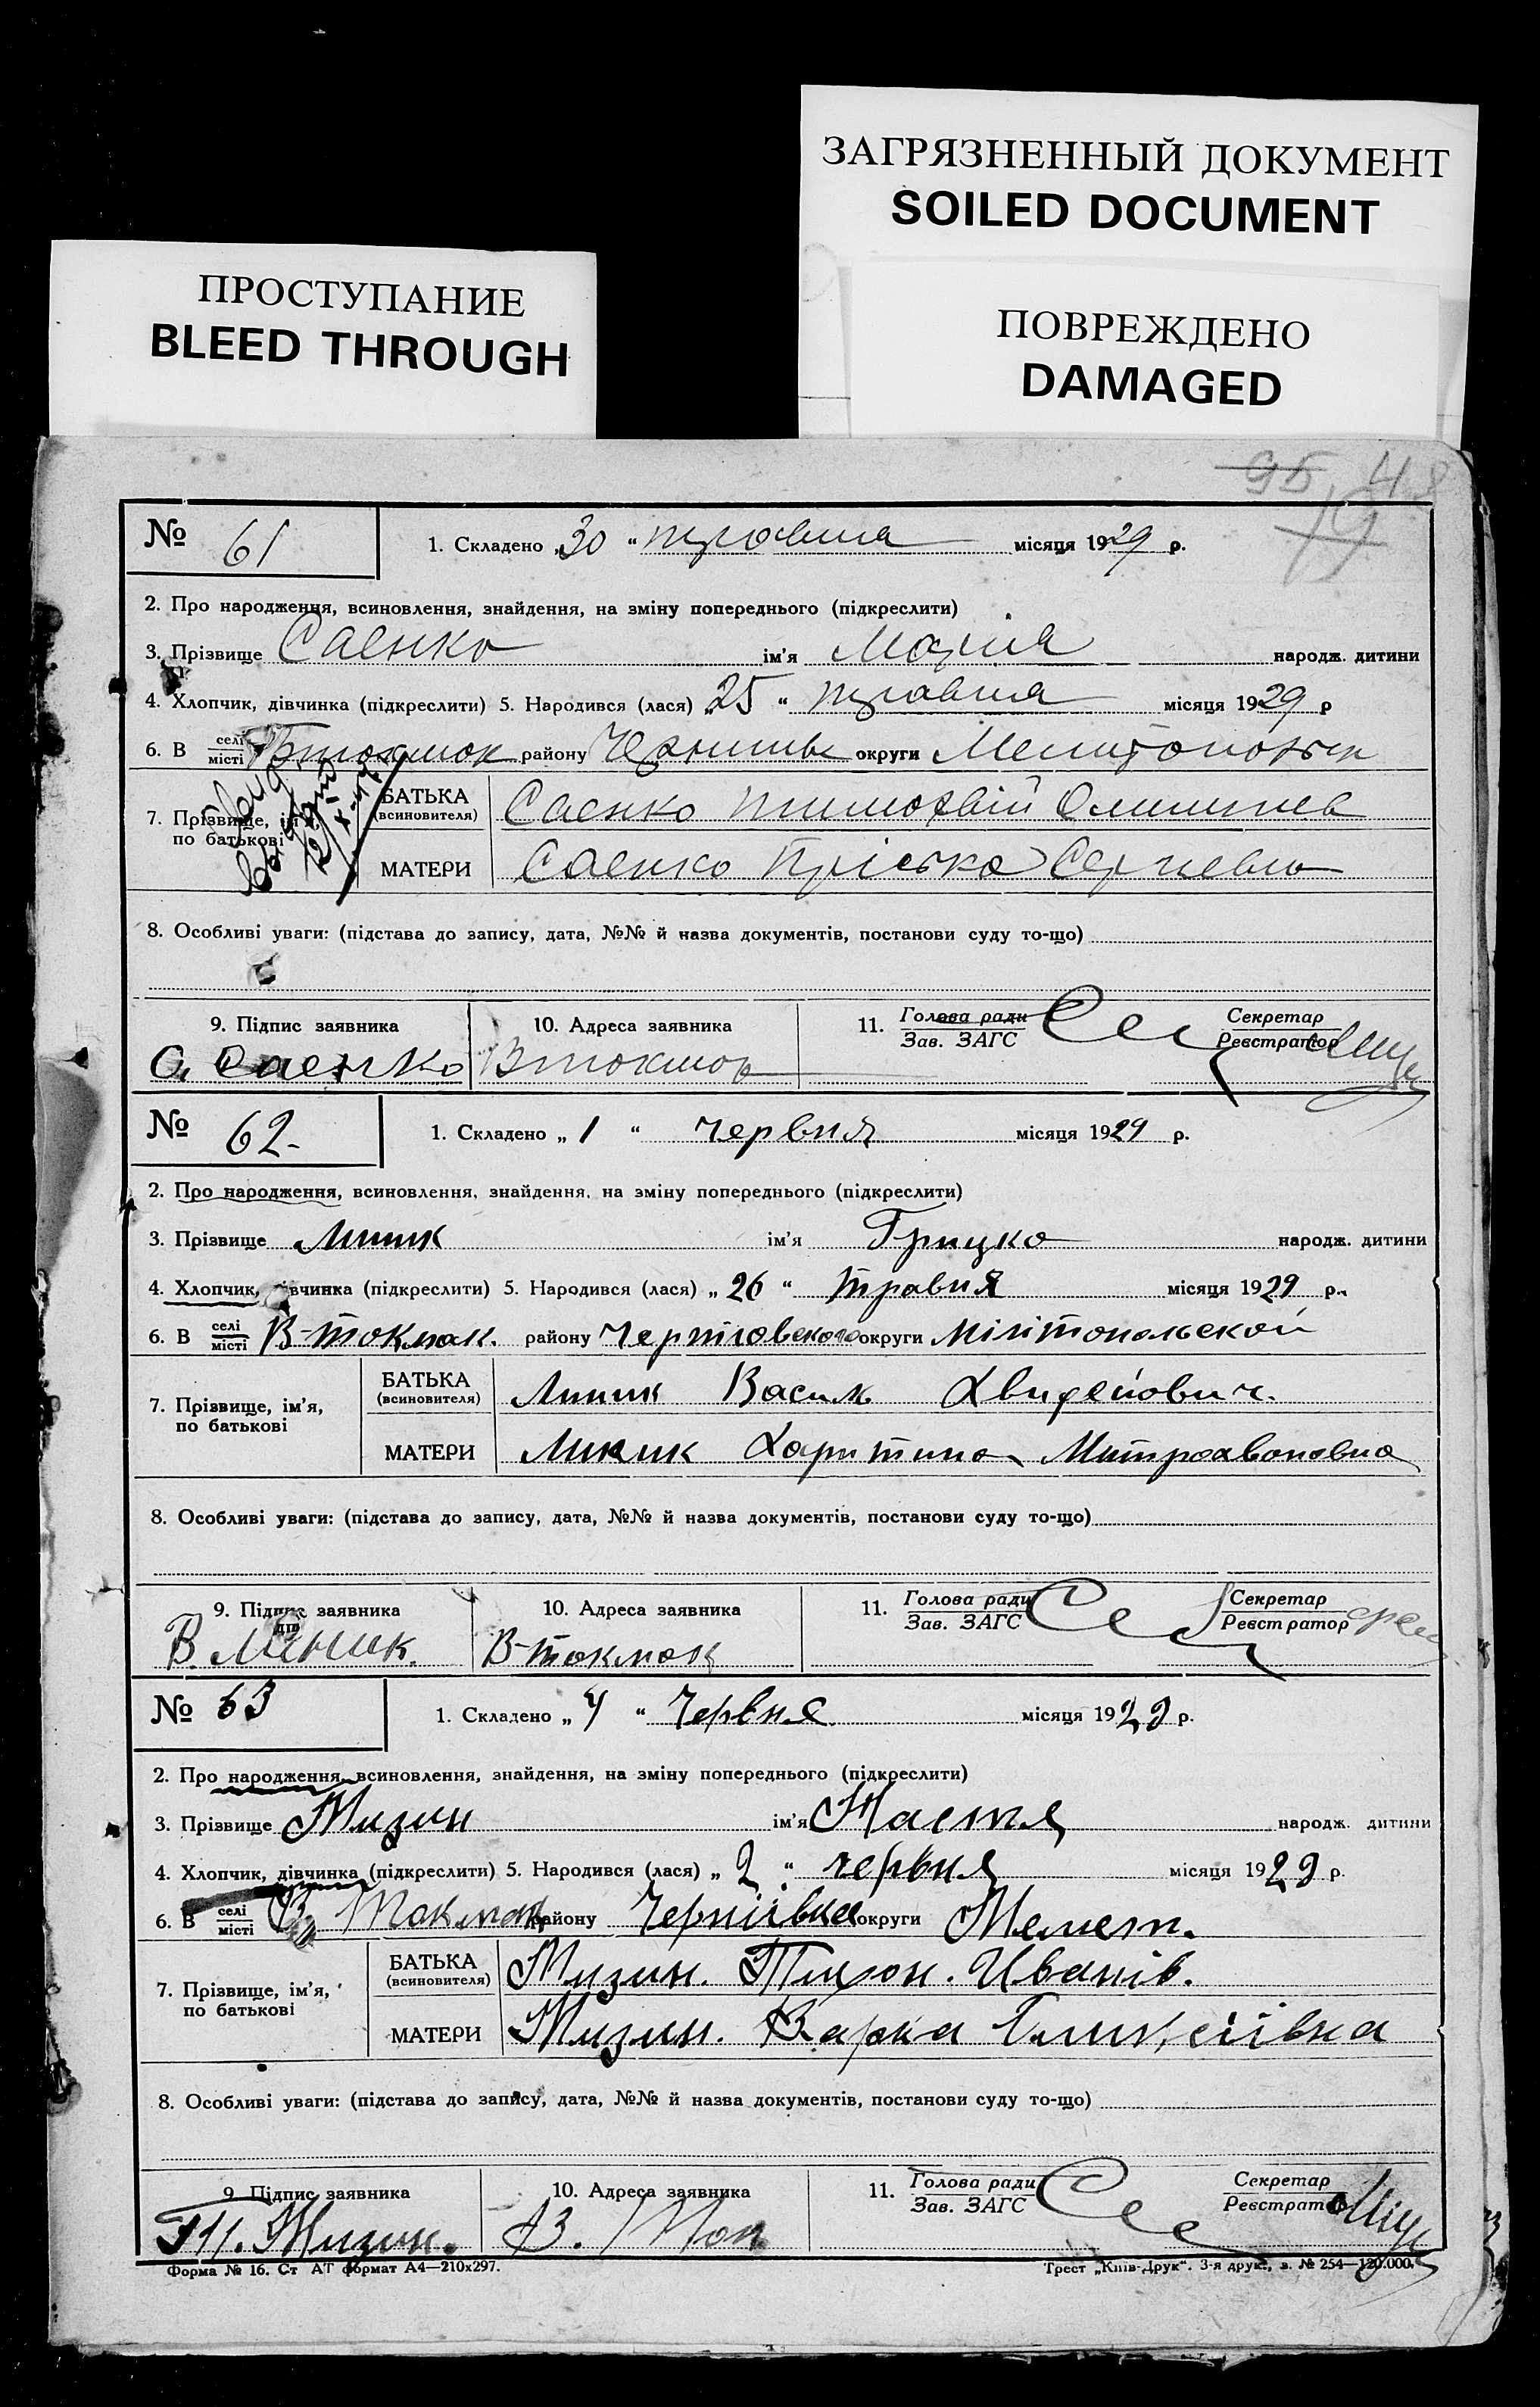 ЗАГРЯЗНЕННЫЙ ДОКУМЕНТ
SOILED DOCUMENT
ПРОСТУПАНИЕ
BLEED THROUGH
ПОВРЕЖДЕНО
DAMAGED
95 48
19
№ 61 1. Складено „30“ травня місяця 1929 р.
2. Про народження, всиновлення, знайдення, на зміну попереднього (підкреслити)
3. Прізвище Саенко ім'я Марія народж. дитини
4. Хлопчик, дівчинка (підкреслити) 5. Народився (лася) „25“ травня місяця 1929 р
6. В селі місті Втокмак району округи
7. Прізвище, ім'я, по батькові
БАТЬКА (всиновителя) Саенко Тимофвій
МАТЕРИ Саенко Пріська Сергиевна
8. Особливі уваги: (підстава до запису, дата, №№ й назва документів, постанови суду то-що)
9. Підпис заявника 10. Адреса заявника 11. Голова ради Зав. ЗАГС Секретар Реєстратор
Саенко Втокмак
№ 62- 1. Складено „1“ червня місяця 1929 р.
2. Про народження, всиновлення, знайдення, на зміну попереднього (підкреслити)
3. Прізвище Линик ім'я Грицко народж. дитини
4. Хлопчик, дівчинка (підкреслити) 5. Народився (лася) „26“ травня місяця 1929 р.
6. В селі місті В-токмак. району округи Мілітопольской
7. Прізвище, ім'я, по батькові
БАТЬКА (всиновителя) Линик Васил
МАТЕРИ Линик Харитина Митрохвановна
8. Особливі уваги: (підстава до запису, дата, №№ й назва документів, постанови суду то-що)
9. Підпис заявника 10. Адреса заявника 11. Голова ради Зав. ЗАГС Секретар Реєстратор
В. Линик. В-токмак
№ 63 1. Складено „4“ Червня місяця 1929 р.
2. Про народження, всиновлення, знайдення, на зміну попереднього (підкреслити)
3. Прізвище Мизин ім'я Настя народж. дитини
4. Хлопчик, дівчинка (підкреслити) 5. Народився (лася) „2“ червня місяця 1929 р.
6. В селі місті В. Токмак району Чернівка округи Мелет.
7. Прізвище, ім'я, по батькові
БАТЬКА (всиновителя) Мизин. Тихон. Иванів.
МАТЕРИ Мизин. Варка
8. Особливі уваги: (підстава до запису, дата, №№ й назва документів, постанови суду то-що)
9. Підпис заявника 10. Адреса заявника 11. Голова ради Зав. ЗАГС Секретар Реєстратор
Мизин. В. Ток
Форма № 16. Ст АТ формат А4—210х297. Трест „Київ-Друк“. 3-я друк., з. № 254—120.000.